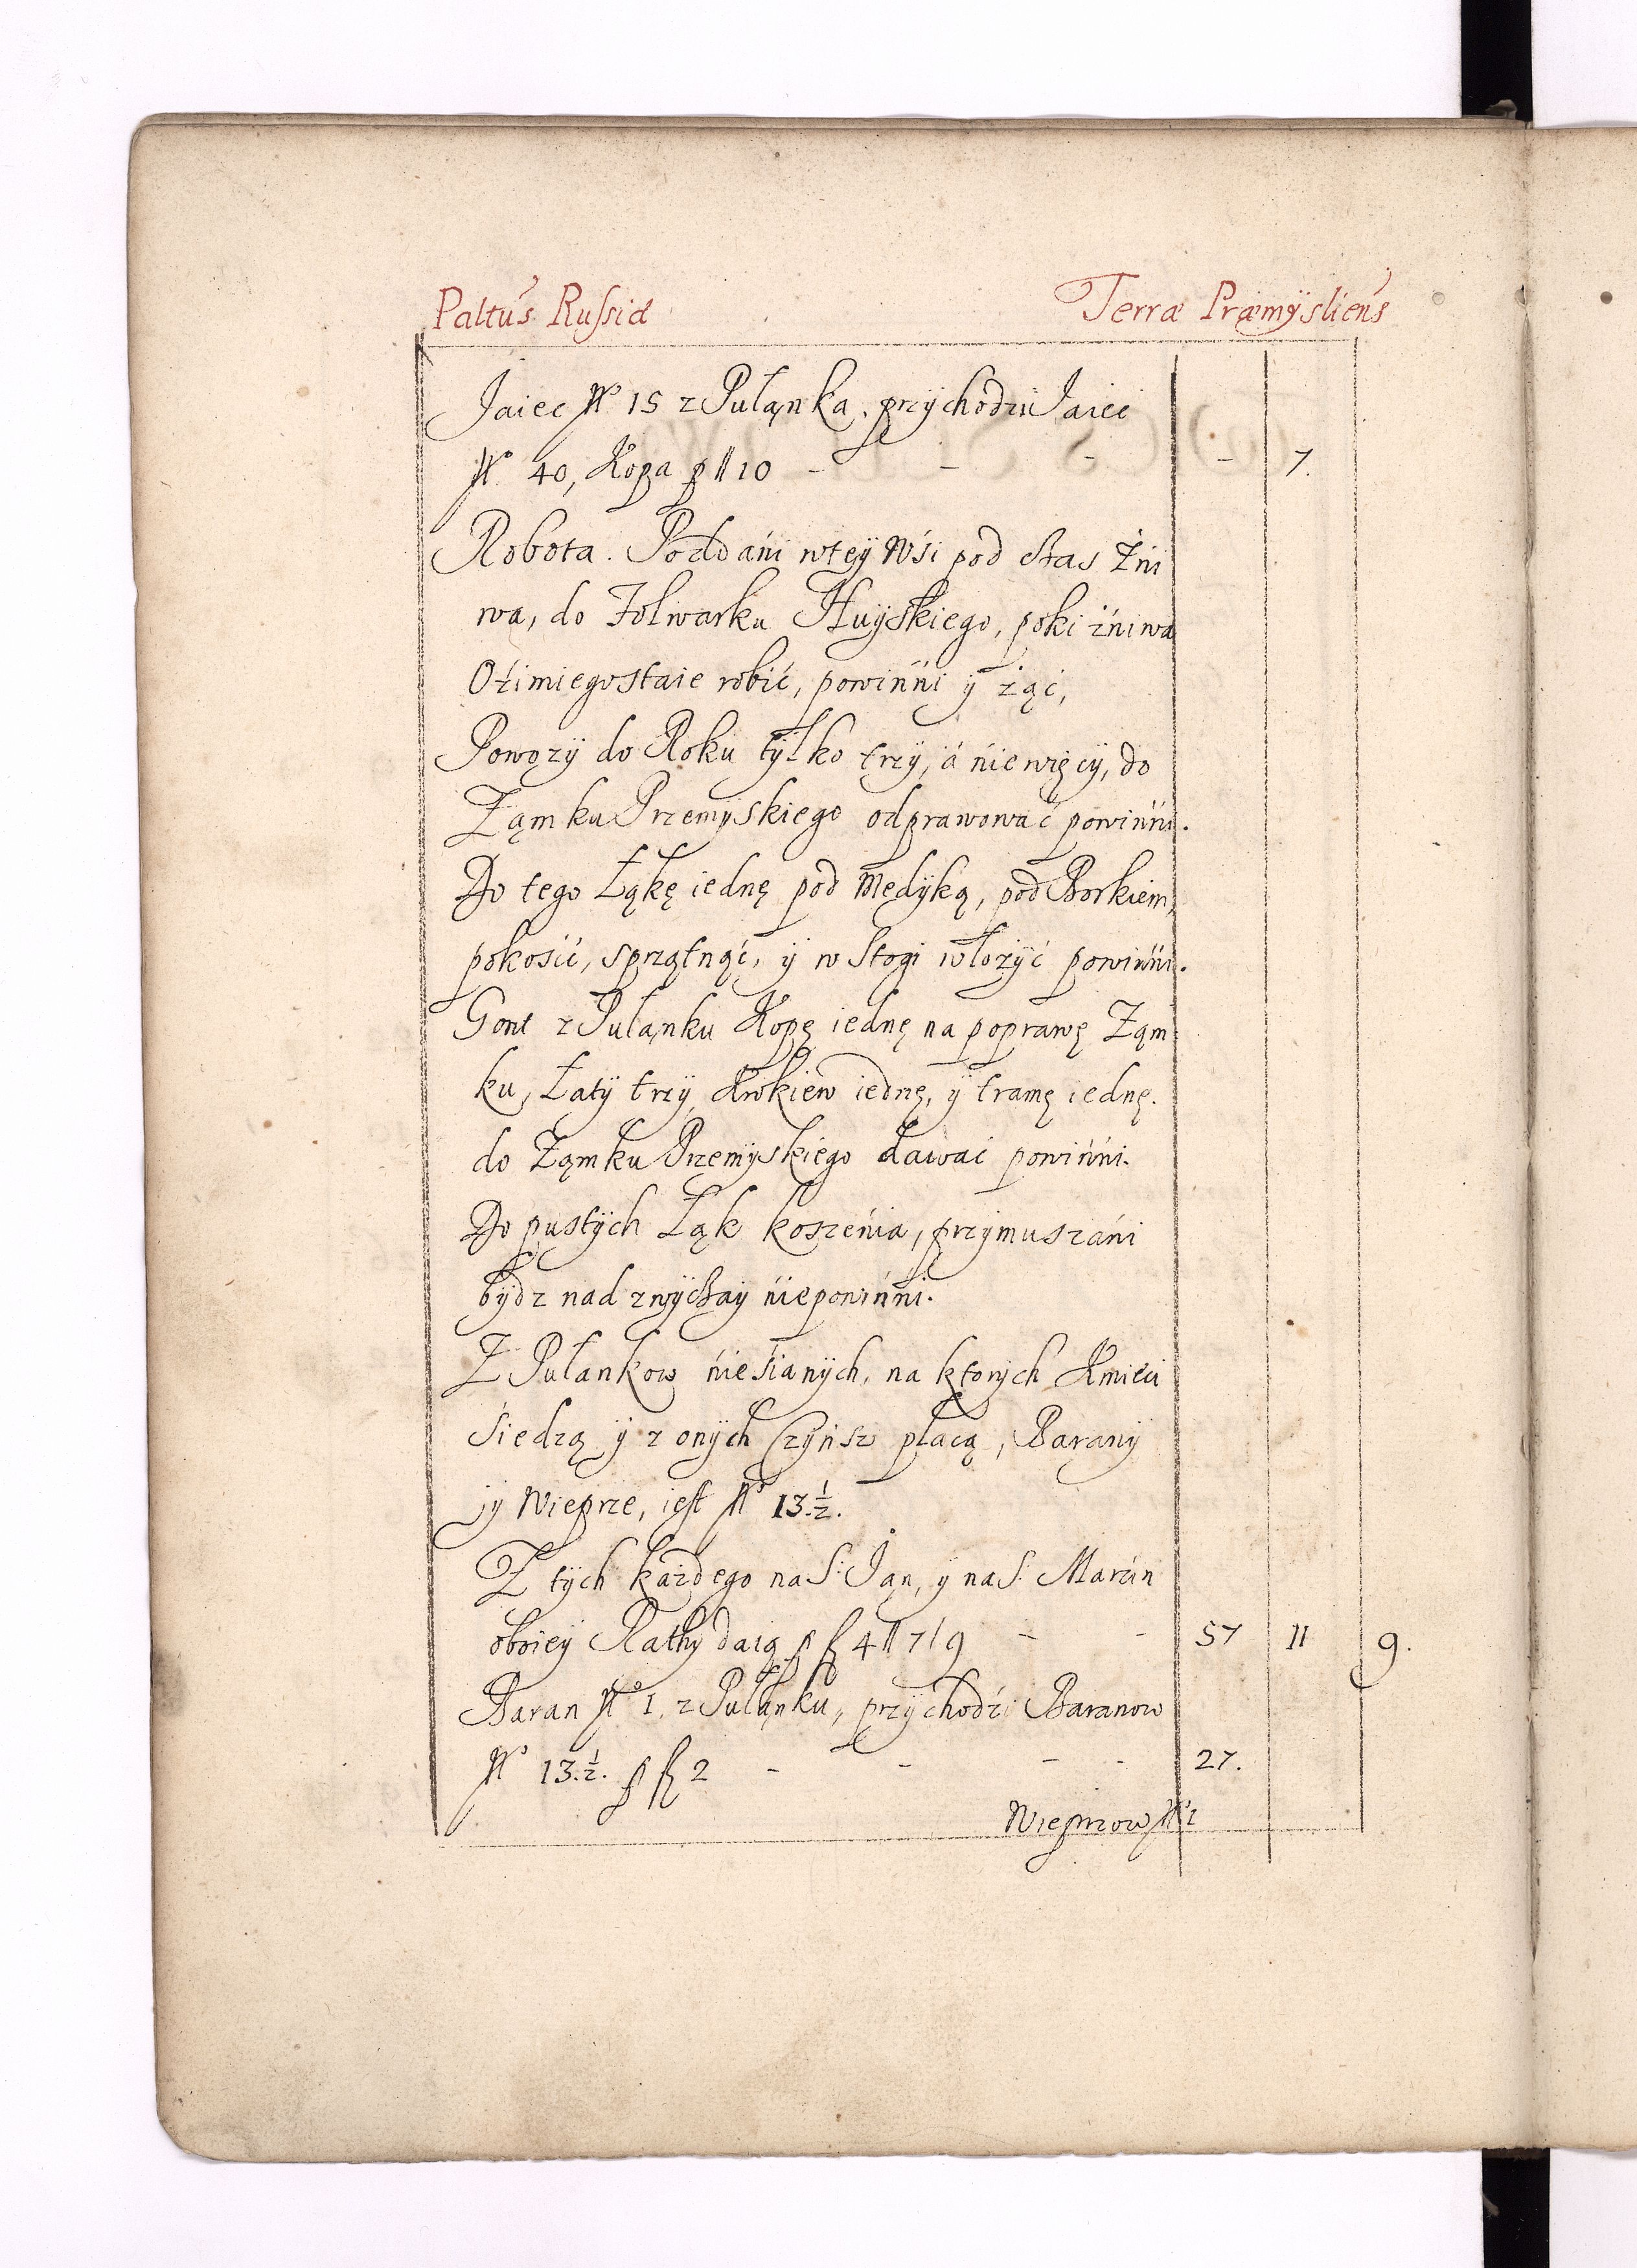 Paltus Russiæ Terræ Præmÿsliens
Jaiec Nº 15 z Pułąnka, przÿchodzi Jaiec
Nº 40, Kopa p ll 10 - - - - 7.
Robota. Poddáni wteÿ Wsi pod Czas Żni
wa, do Folwarku Huÿskiego, poki żniwa
Oźimiego staie robić, powinńi ÿ żąć,
Powozÿ do Roku tÿlko trzÿ, á niewięcÿ, do
Ząmku Przemÿskiego odprawować powinńi.
Do tego Łąkę iednę pod Medÿką, pod Borkiem,
pokośić, sprzątnąć, ÿ w Stogi włożÿć powinńi.
Gont z Pułanku Kopę iednę na poprawę Ząm
ku, Łatÿ trzÿ, Krokiew iednę, ÿ tramę iednę.
do Ząmku Przemÿskiego dawać powinńi.
Do pustÿch Łąk koszeńia, przÿmuszáni
bÿdz nad zwÿczaÿ ńiepowinńi.
Z Pułankow ńiesianÿch, na ktorÿch Kmiecí
śiedzą ÿ z onÿch Czÿnsz płacą, Baranÿ
ÿ Wieprze, iest Nº 13.½.
Z tÿch każdego na S: Jąn, ÿ na S: Marćin
oboieÿ Rathÿ daią p fl 4 ll 7 / 9 - - 57 11 9.
Baran Nº 1. z Pułąnku, przÿchodźi Baranow
Nº 13.½. p fl 2 - - - - 27.
Wieprzow Nº 1